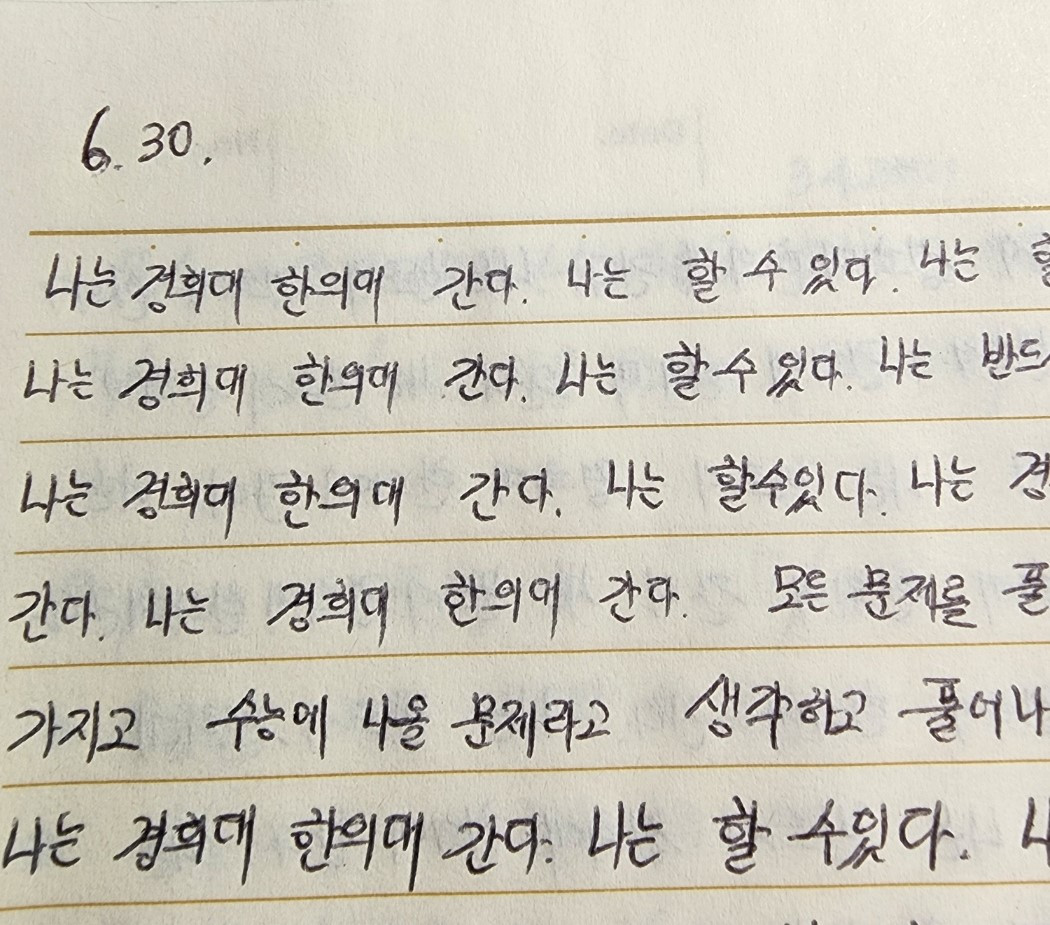 6. 30.
나는 경희대 한의대 간다. 나는 할 수 있다. 나는
나는 경희대 한의대 간다. 나는 할 수 있다. 나는 반드
나는 경희대 한의대 간다. 나는 할수있다. 나는 경
간다. 나는 경희대 한의대 간다. 모든 문제를 풀
가지고 수능에 나올 문제라고 생각하고 풀어나
나는 경희대 한의대 간다. 나는 할 수있다.